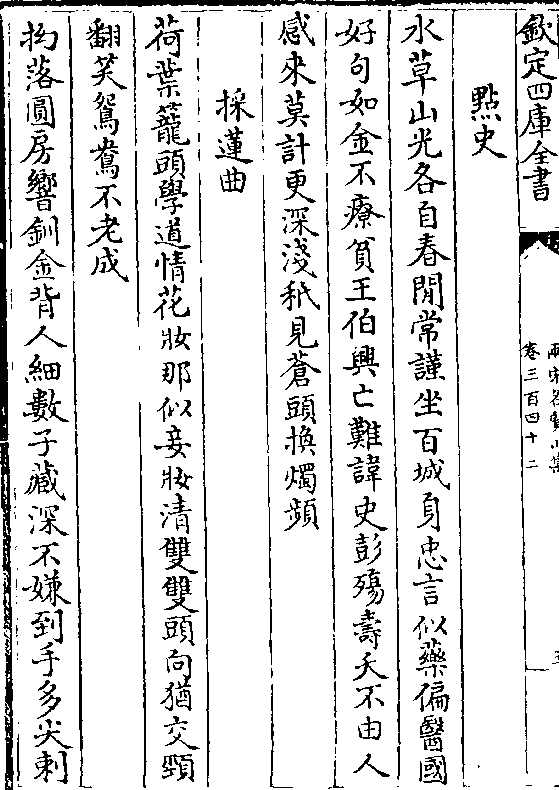 欽定四庫全書
卷三百四十二
點史
水草山光各自春閒常謹坐百城身忠言似藥偏醫國
好句如金不療貧王伯興亡難諱史彭殤壽夭不由人
感來莫計更深淺秖見蒼頭換燭頻
採蓮曲
荷葉籠頭學道情花妝那似妾妝清雙雙頭向猶交頸
翻笑鴛鴦不老成
拗落圓房響釧金背人細數子藏深不嫌到手多尖刺